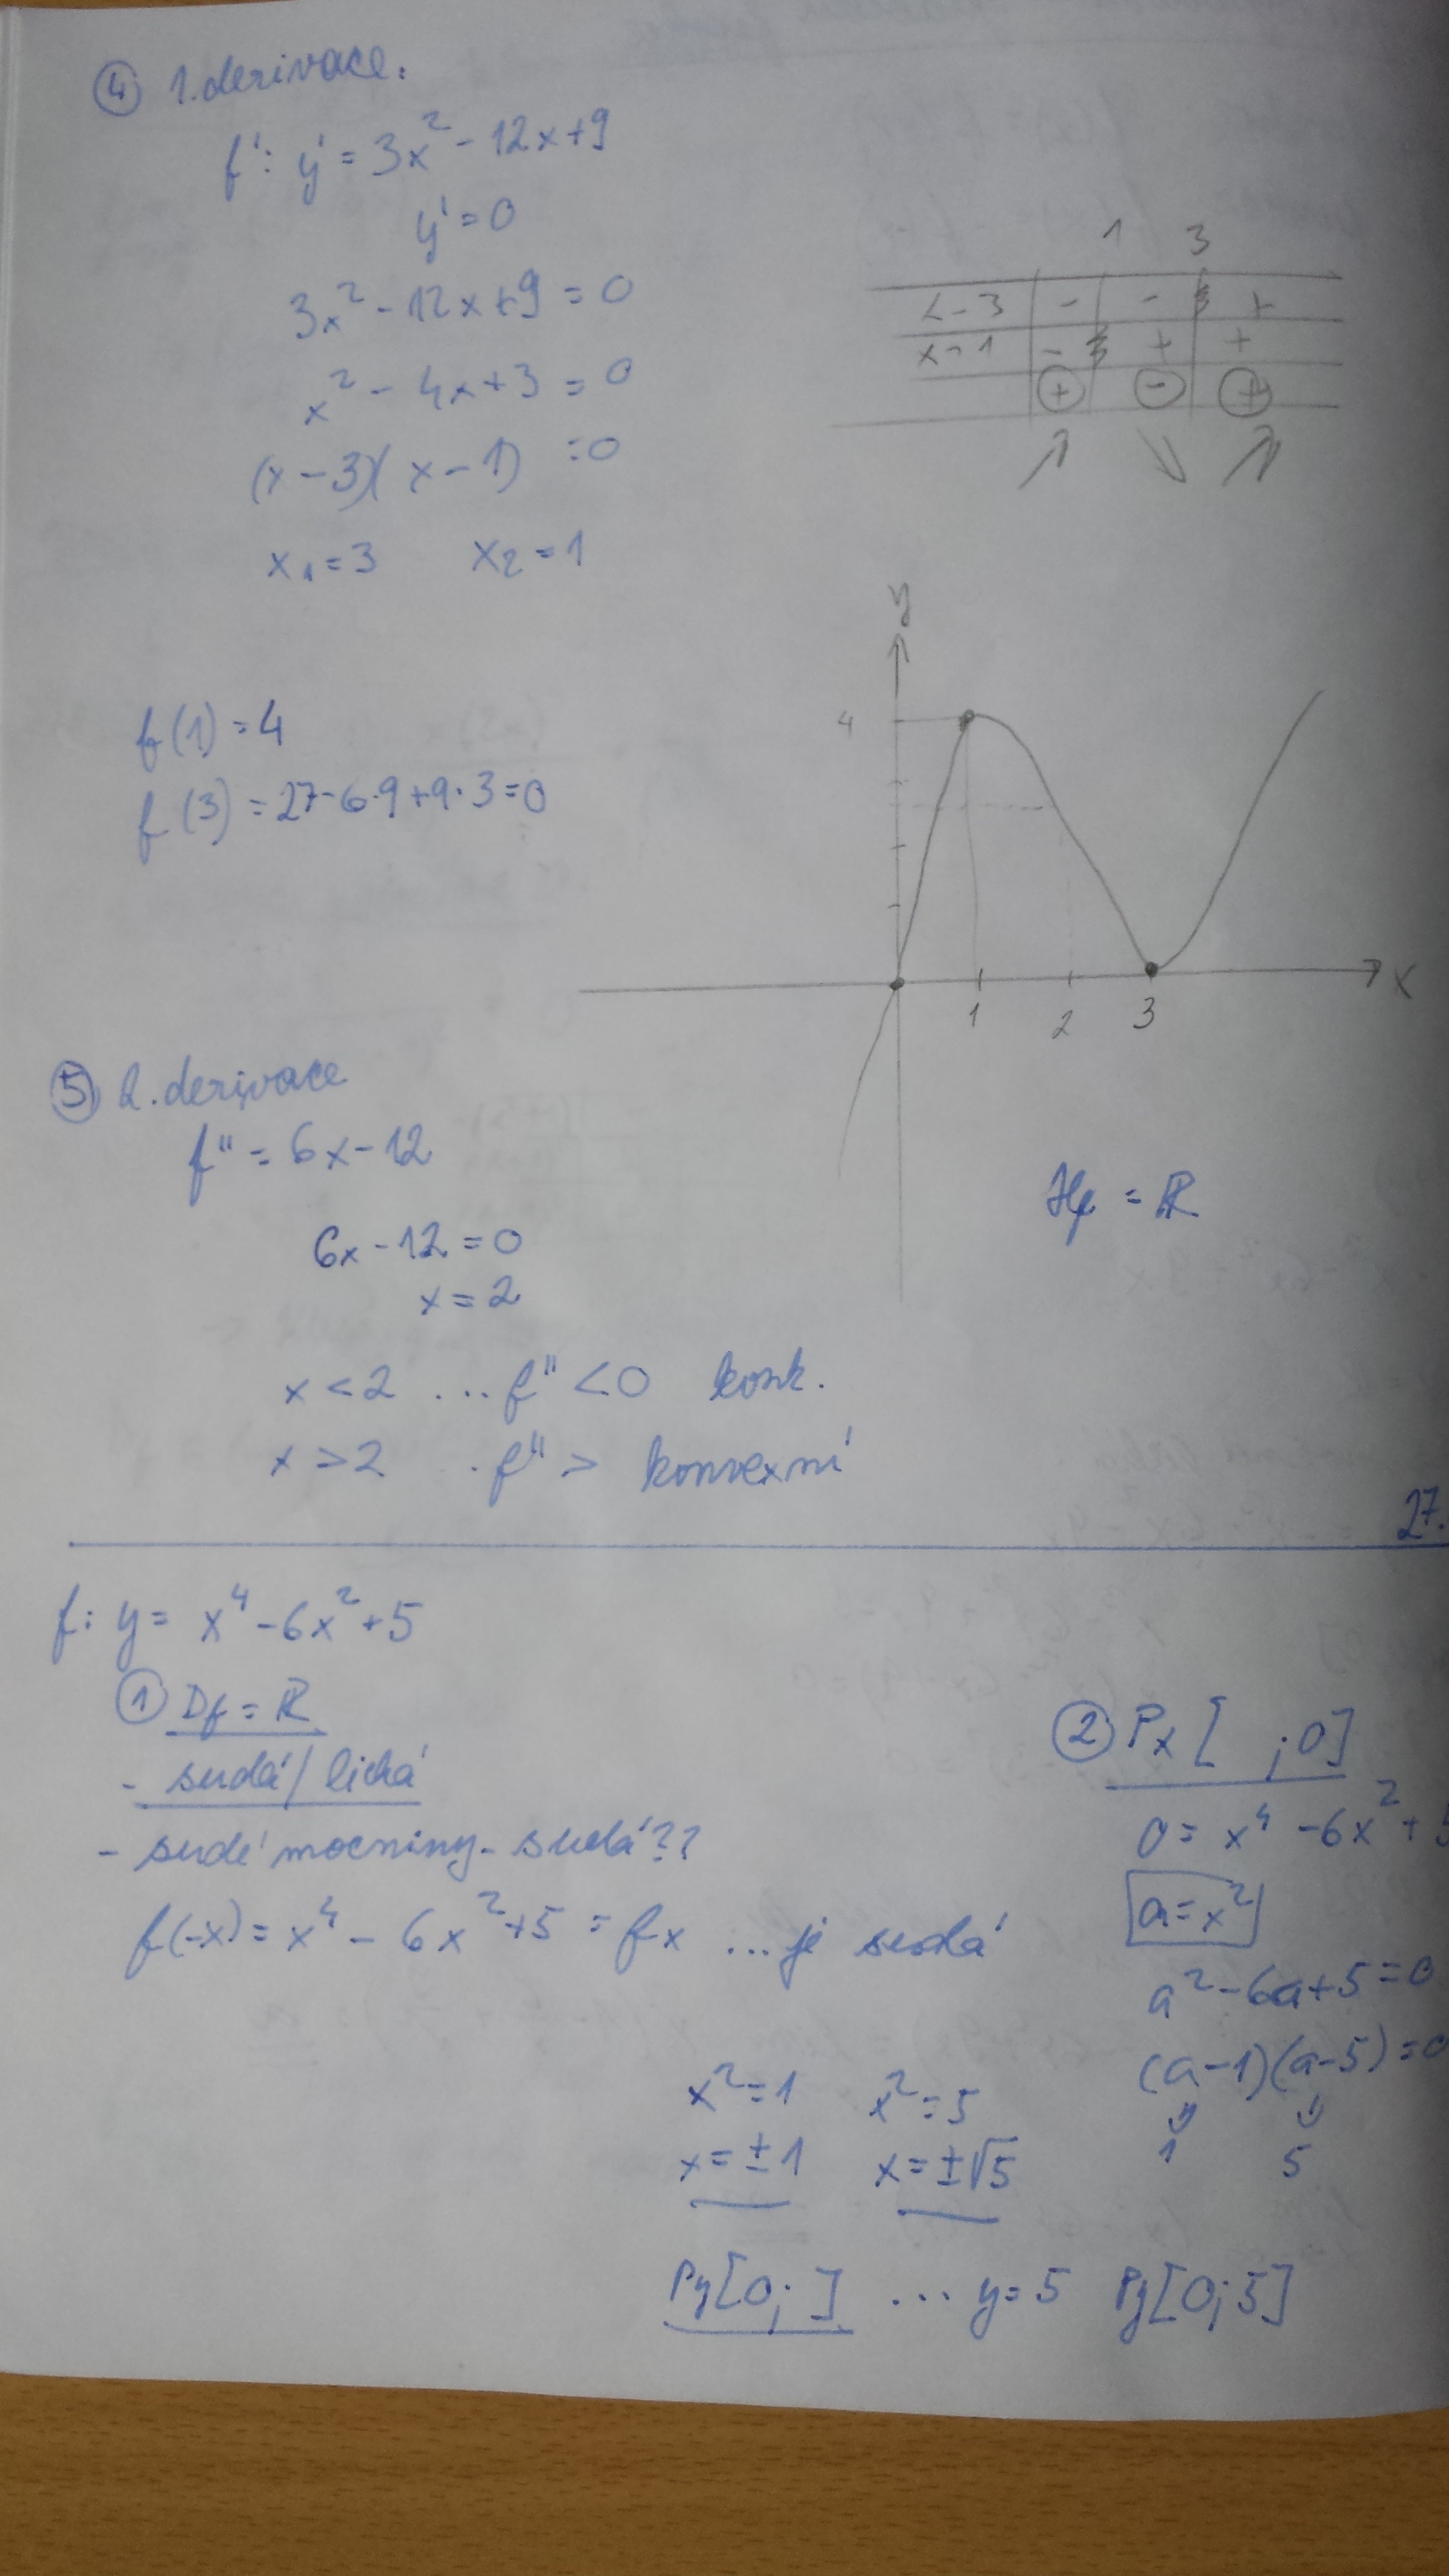 ④ 1. derivace:
f': y' = 3x² - 12x + 9
y' = 0
3x² - 12x + 9 = 0
x² - 4x + 3 = 0
(x - 3)(x - 1) = 0
x₁ = 3 x₂ = 1
1 3
x - 3 - - +
x - 1 - + +
+ - +
f(1) = 4
f(3) = 27 - 6·9 + 9·3 = 0
y
4
1 2 3 x
⑤ 2. derivace
f'' = 6x - 12
6x - 12 = 0
x = 2
Hf = ℝ
x < 2 ... f'' < 0 konk.
x > 2 . f'' > konvexní
27.
f: y = x⁴ - 6x² + 5
① Df = ℝ
- sudá/lichá
- sudé mocniny - sudá??
f(-x) = x⁴ - 6x² + 5 = fx ... je sudá
② Px [ ; 0]
0 = x⁴ - 6x² + 5
a = x²
a² - 6a + 5 = 0
(a - 1)(a - 5) = 0
1 5
x² = 1 x² = 5
x = ±1 x = ±√5
Py [0; ] ... y = 5 Py [0; 5]